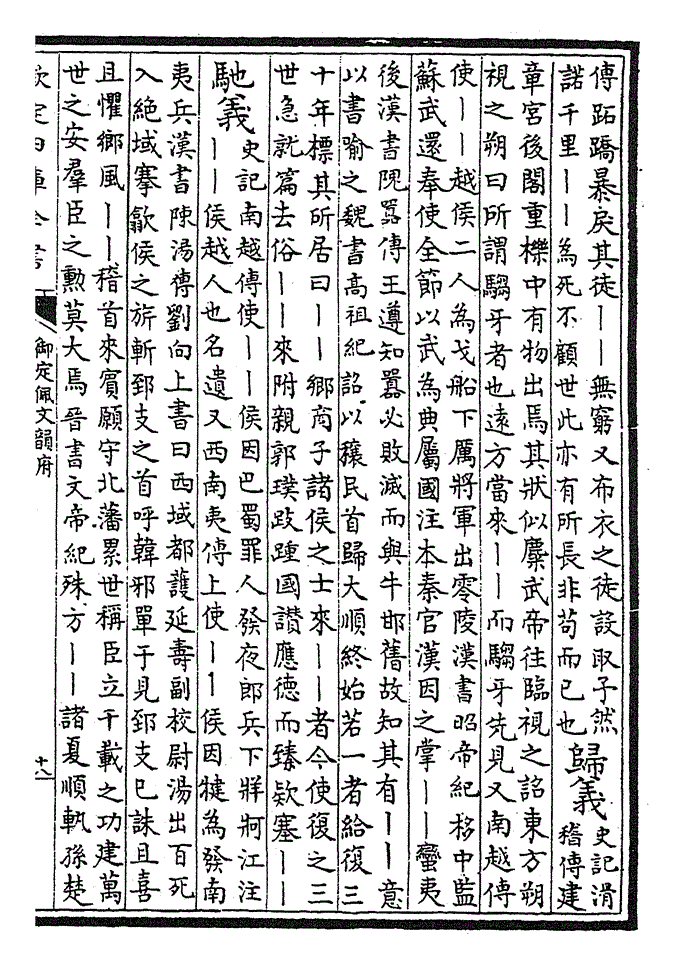 傳跖蹻暴戾其徒——無窮又布衣之徒設取予然
諾千里——為死不顧世此亦有所長非苟而已也
歸義
史記滑
稽傳建
章宮後閣重櫟中有物出焉其狀似麋武帝往臨視之詔東方朔
視之朔曰所謂騶牙者也遠方當來——而騶牙先見又南越傳
使——越侯二人為戈船下厲將軍出零陵漢書昭帝紀栘中監
蘇武還奉使全節以武為典屬國注本秦官漢因之掌——蠻夷
後漢書隗囂傳王遵知囂必敗滅而與牛邯舊故知其有——意
以書喻之魏書高祖紀詔以穰民首歸大順終始若一者給復三
十年標其所居曰——鄉商子諸侯之士來——者今使復之三
世急就篇去俗——來附親郭璞跂踵國讚應德而臻欵塞——
馳義
史記南越傳使——侯因巴蜀罪人發夜郎兵下牂牁江注
——侯越人也名遺又西南夷傳上使——侯因犍為發南
夷兵漢書陳湯傳劉向上書曰西域都護延壽副校尉湯出百死
入絶域搴歙侯之旂斬郅支之首呼韓邪單于見郅支已誅且喜
且懼鄉風——稽首來賓願守北藩累世稱臣立千載之功建萬
世之安羣臣之勲莫大焉晉書文帝紀殊方——諸夏順軌孫楚
欽定四庫全書
御定佩文韻府
十八